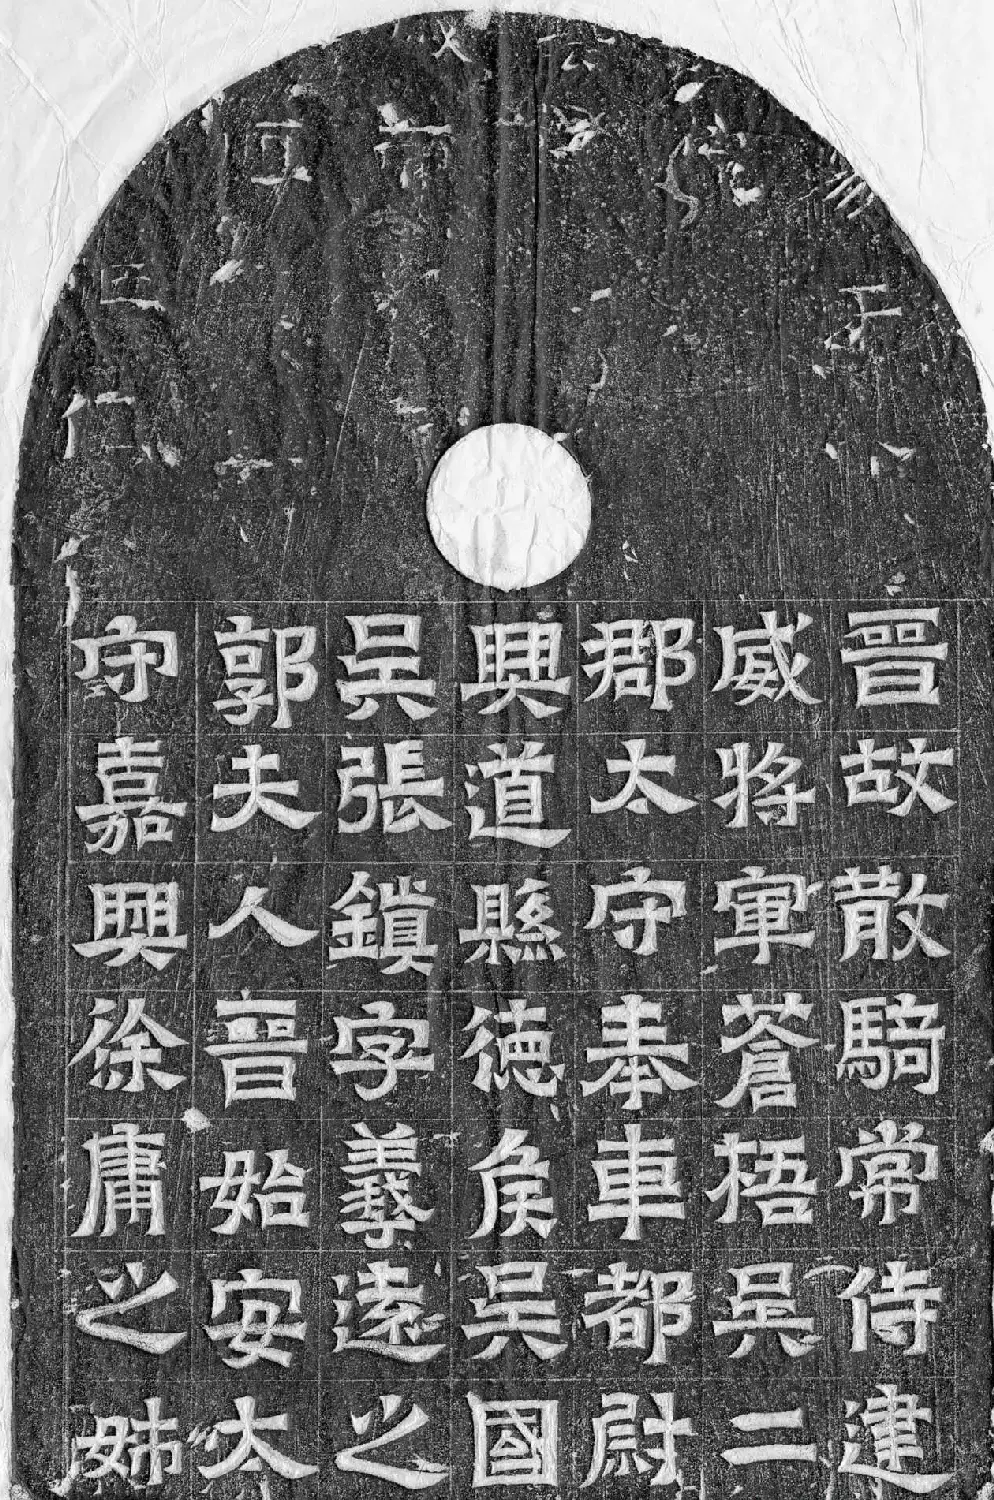 晉故散騎常侍建
威將軍蒼梧吳二
郡太守奉車都尉
興道縣徳侯吳國
吳張鎮字羲遠之
郭夫人晉始安太
守嘉興徐庸之姊